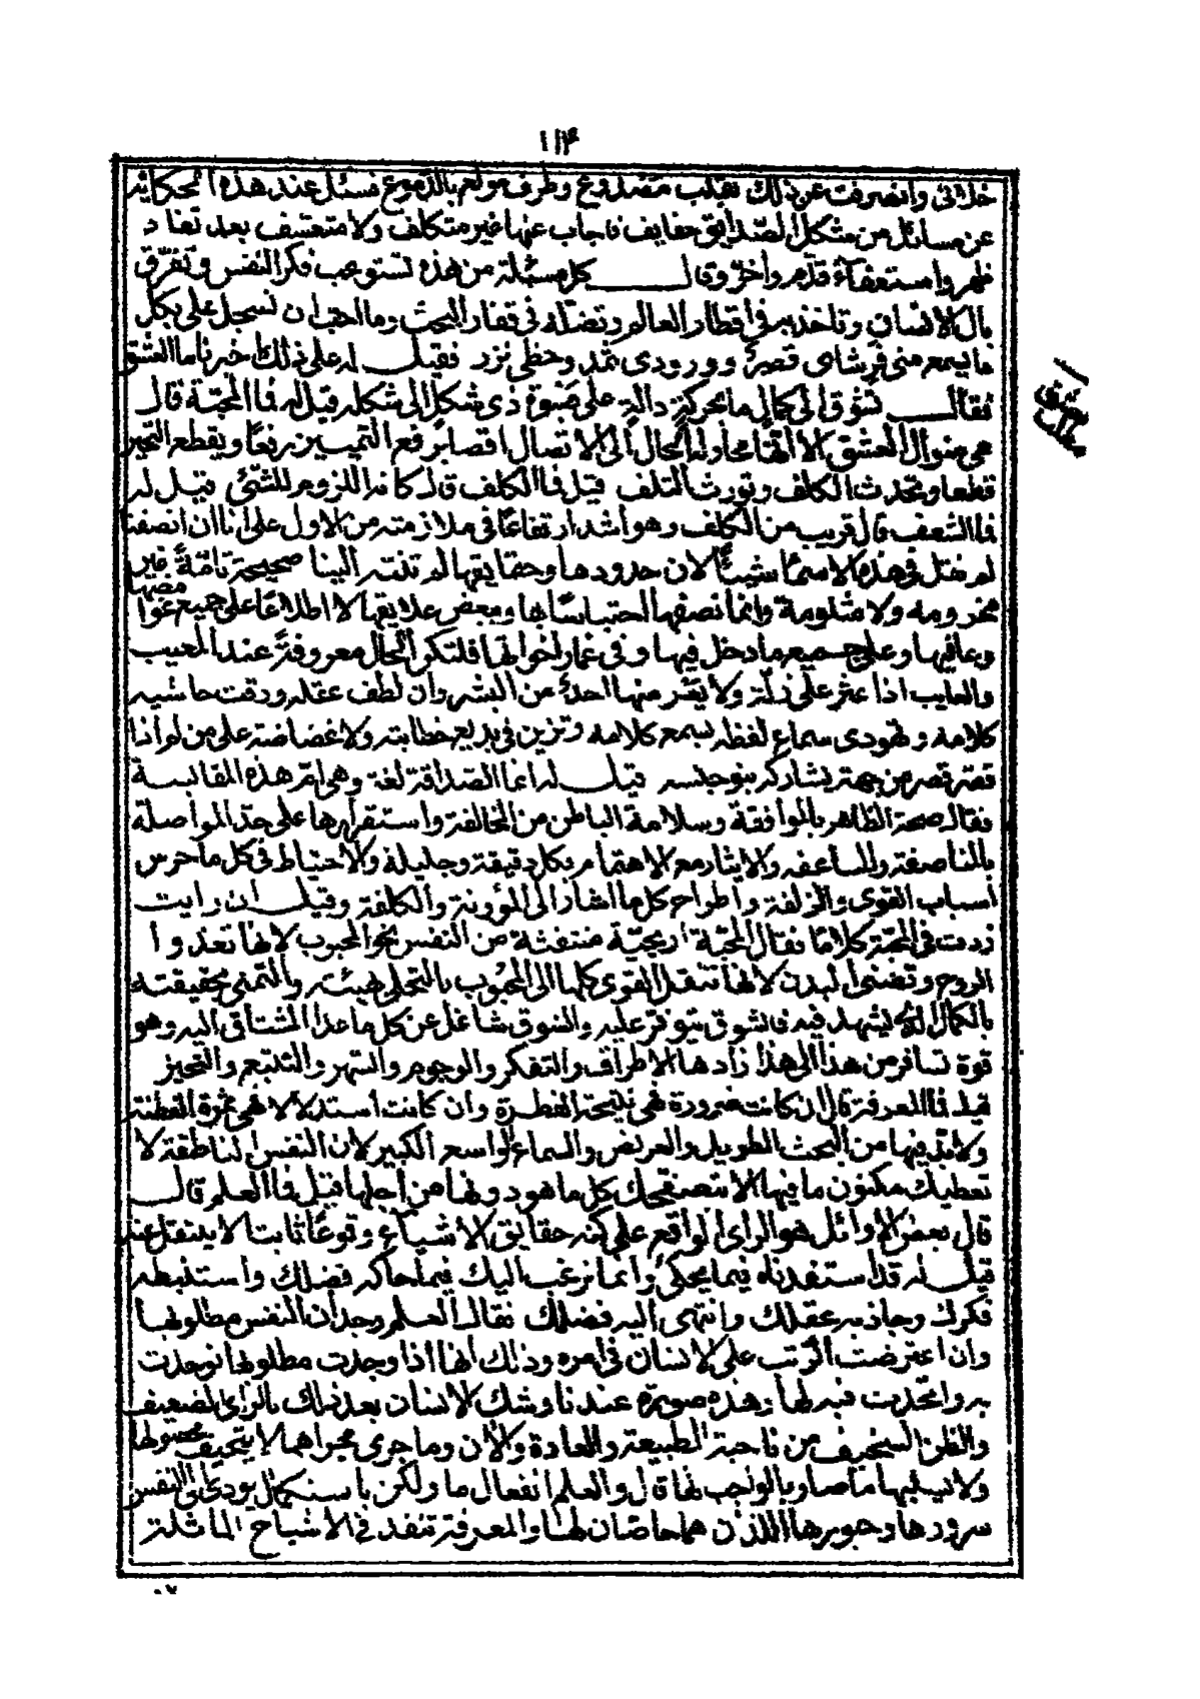 ١١٤
خلاني وانصرفت عن ذلك بقلب مصدوع وطرف مولع بالدموع فسئل عند هذه الحكاية
عن مسائل من مشكل الصداقة حقايق فاجاب عنها غير متكلف ولا متعسف بعد
ظهر واستعفاء قدم واخر وقال كل مسئلة من هذه تستوعب فكر النفس وتفرق
بال الانسان وتاخذ به في اقطار العالم وتضله في قفار البحث وما احب ان تسجل على بكل
ما يسمع مني فرشاى قصير وورودى ثمد وحظي نزر فقيل له على ذلك خبرنا ما العشق
فقال تشوق الى كمال ما بحركة دالة على صبوة ذى شكل الى شكله قيل له فما المحبة قال
هى منوال العشق الا انها الى الاتصال يرفع التمييز رفعا ويقطع التحير
قطعا وتحدث الكلف وتورث التلف قيل فما الكلف قال كانه اللزوم للشئ قيل له
فما الشعف قال قريب من الكلف وهو اشد ارتفاعا في ملازمته من الاول على اننا ان انصفنا
لم نقل في هذه الاسماء شيئا لان حدودها وحقايقها لم تنته الينا صحيحة تامة غير
مخرومة ولا مثلومة وانما نصفها ببعض علايقها لا اطلاعا على جميع
وعلى جميع ما دخل فيها وفي فلتكن الحال معروفة عند المعيب
والعايب اذا عثر على زلة ولا منها احد من البشر وان لطف عقله ورقت حاشية
كلامه وتهودى سماع لفظه بسمع كلامه وتزين في بديع خطابته ولا غضاضة على من اذا
قصر قصر من جهة يشاركه بنو جنسه قيل له انما الصداقة لغة وهى ام هذه المقابسة
فقال صحة الظاهر بالموافقة وسلامة الباطن من المخالفة واستقرارها على حد المواصلة
بالمناصفة والمساعفة والايثار مع الاهتمام بكل دقيقة وجليلة والاحتياط في كل ما حرس
اسباب القوى والزلفة واطراح كل ما اشار الى المؤونة والكلفة وقيل ان رايت
زدت في المحبة كلاما فقال المحبة اريحية منتفثة من النفس نحو المحبوب لانها تغذوا
الروح وتضنى البدن لانها تنقل القوى كلها الى المحبوب بالتحلى بهيئته والتمنى بحقيقته
بالكمال الذى يشهد فيه فالشوق يتوفر عليه والشوق شاغل عن كل ما عدا المشتاق اليه وهو
قوة تسافر من هذا الى هذا زادها الاطراق والتفكر والوجوم والسهر والتتبع والتحيز
قيل فما المعرفة قال ان كانت ضرورة فهى نتيجة الفطرة وان كانت استدلالا فهى ثمرة الفطنة
ولا بد فيها من البحث الطويل والعريض والسماع الواسع الكبير لان النفس الناطقة لا
تعطيك مكنون ما فيها الا بتصفحك كل ما هو دونها من اجلها قيل فما العلم قال
قال بعض الاوائل هو الراى الواقع على كنه حقايق الاشياء وقوعا ثابتا لا ينتقل عنه
قيل له قد استفدناه فيما يحكى وانما نرغب اليك فيما حاكه فضلك واستنبطه
فكرك وجاذبه عقلك وانتهى اليه فضلك فقال العلم وجدان النفس مطلوبها
وان اعترضت الريب على الانسان في امره وذلك انها اذا وجدت مطلوبها توحدت
به واتحدت فيه لها وهذه صورة عندنا وشك الانسان بعد ذلك بالراى الضعيف
والظن السخيف من ناحية الطبيعة والعادة والالف وما جرى مجراهما لا يتحيف محصولها
ولا يسلبها ما صار بالواجب لها قال والعلم انفعال ما ولكن باستكمال يودى الى النفس
سرورها وحبورها اللذان هما خاصان لها والمعرفة تنفد في الاشباح الماثلة